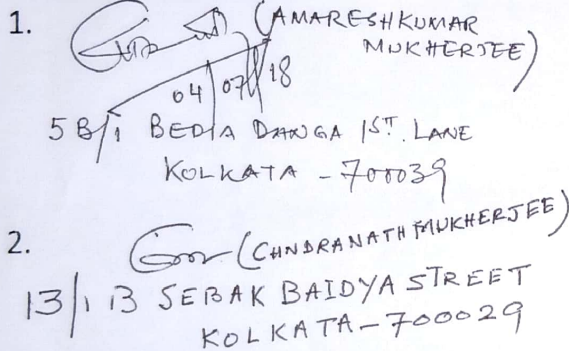 1. (AMARESH KUMAR
MUKHERJEE)
04/07/18
5 B/1 BEDIA DANGA 1ST. LANE
KOLKATA - 700039
2. (CHNDRANATH MUKHERJEE)
13/1 B SEBAK BAIDYA STREET
KOLKATA - 700029